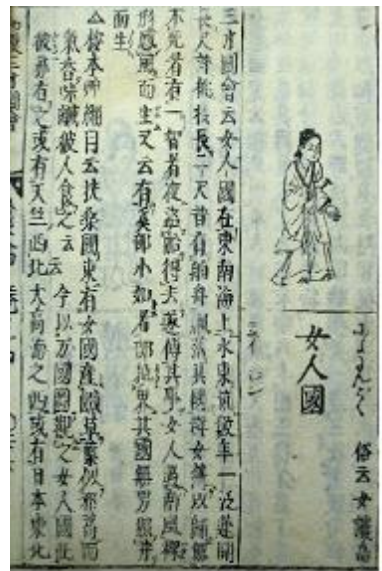 俗云女護島
女人國
三才圖會云女人國在東南海上水東流數年一泛蓮開
長丈許桃核長二尺昔有舶舟飄落其國群女携以歸無
不死者有一智者夜盗船得去遂傳其事女人遇南風裸
形感風而生又云有奚部小如者部抵界其國無男照井
而生
△按本草綱目云扶桑國東有女國産鹹草葉似邪蒿而
氣香味鹹彼人食之云云今以万國圖觀之女人國此
彼有之或有天竺西北大高海之西或有日本東北
漢三才圖會